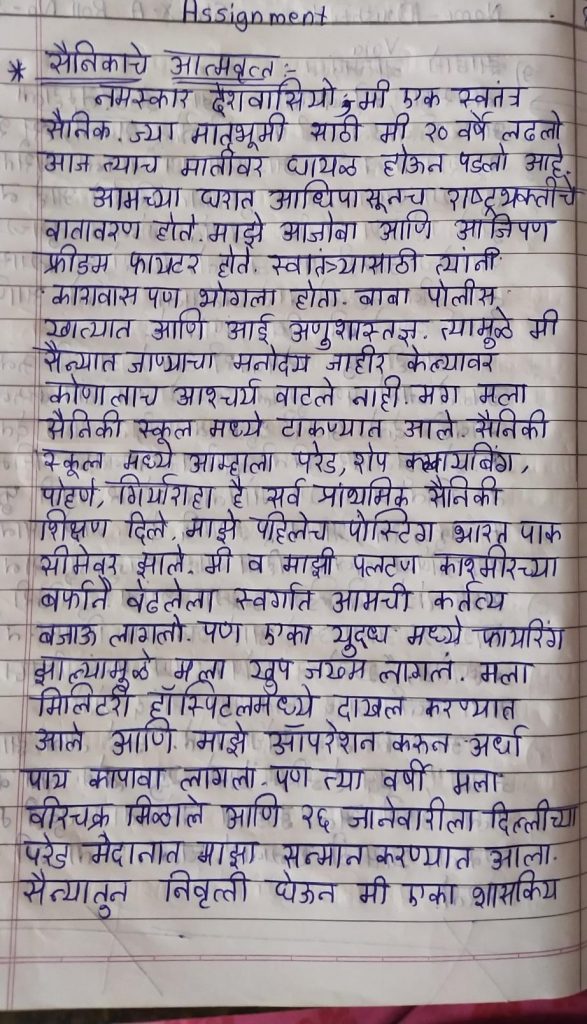 Assignment
* सैनिकाचे आत्मवृत्त :-
नमस्कार देशवासियो, मी एक स्वतंत्र
सैनिक. ज्या मातृभूमी साठी मी २० वर्षे लढलो
आज त्याच मातीवर घायळ होऊन पडलो आहे.
आमच्या घरात आधिपासूनच राष्ट्रभक्तीचे
वातावरण होते. माझे आजोबा आणि आजिपण
फ्रीडम फायटर होते. स्वातंत्र्यासाठी त्यांनी
कारावास पण भोगला होता. बाबा पोलीस
खात्यात आणि आई अणुशास्त्रज्ञ. त्यामुळे मी
सैन्यात जाण्याचा मनोदय जाहीर केल्यावर
कोणालाच आश्चर्य वाटले नाही. मग मला
सैनिकी स्कूल मध्ये टाकण्यात आले. सैनिकी
स्कूल मध्ये आम्हाला परेड, रोप क्लायबिंग,
पोहणे, गिर्यारोहा हे सर्व प्रांथमिक सैनिकी
शिक्षण दिले. माझे पहिलेच पोस्टिंग भारत पाक
सीमेवर झाले. मी व माझी पलटण काश्मीरच्या
बर्फाने वेढलेला स्वर्गात आमची कर्तव्य
बजाऊ लागलो. पण एका युद्ध मध्ये फायरिंग
झाल्यामुळे मला खुप जख्म लागलं. मला
मिलिटरी हॉस्पिटलमध्ये दाखल करण्यात
आले आणि माझे ऑपरेशन करुन अर्धा
पाय कापावा लागला. पण त्या वर्षी मला
वीरचक्र मिळाले आणि २६ जानेवारीला दिल्लीच्या
परेड मैदानात माझा सन्मान करण्यात आला.
सैन्यातुन निवृत्ती घेऊन मी एका शासकिय